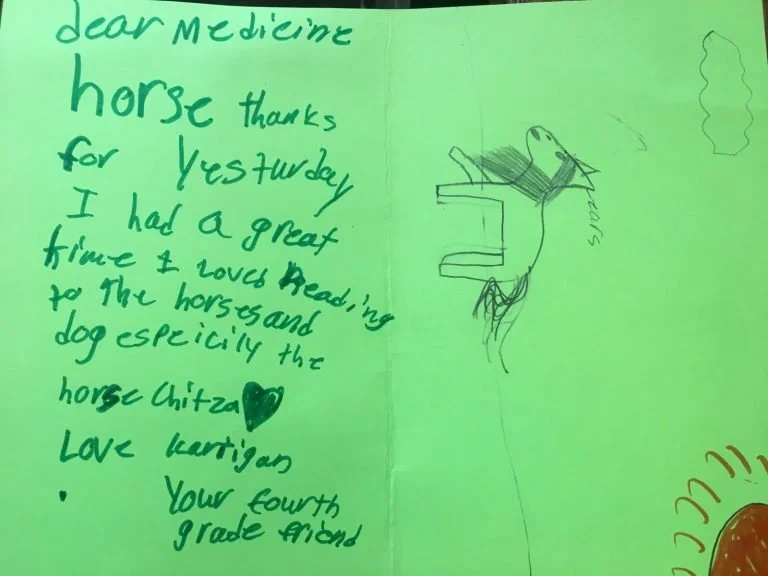 dear Medicine
horse thanks
for Yesturday
I had a great
time I loved Reading
to the horses and
dog espeicily the
horse Chitza
Love kartigan
Your fourth
grade friend